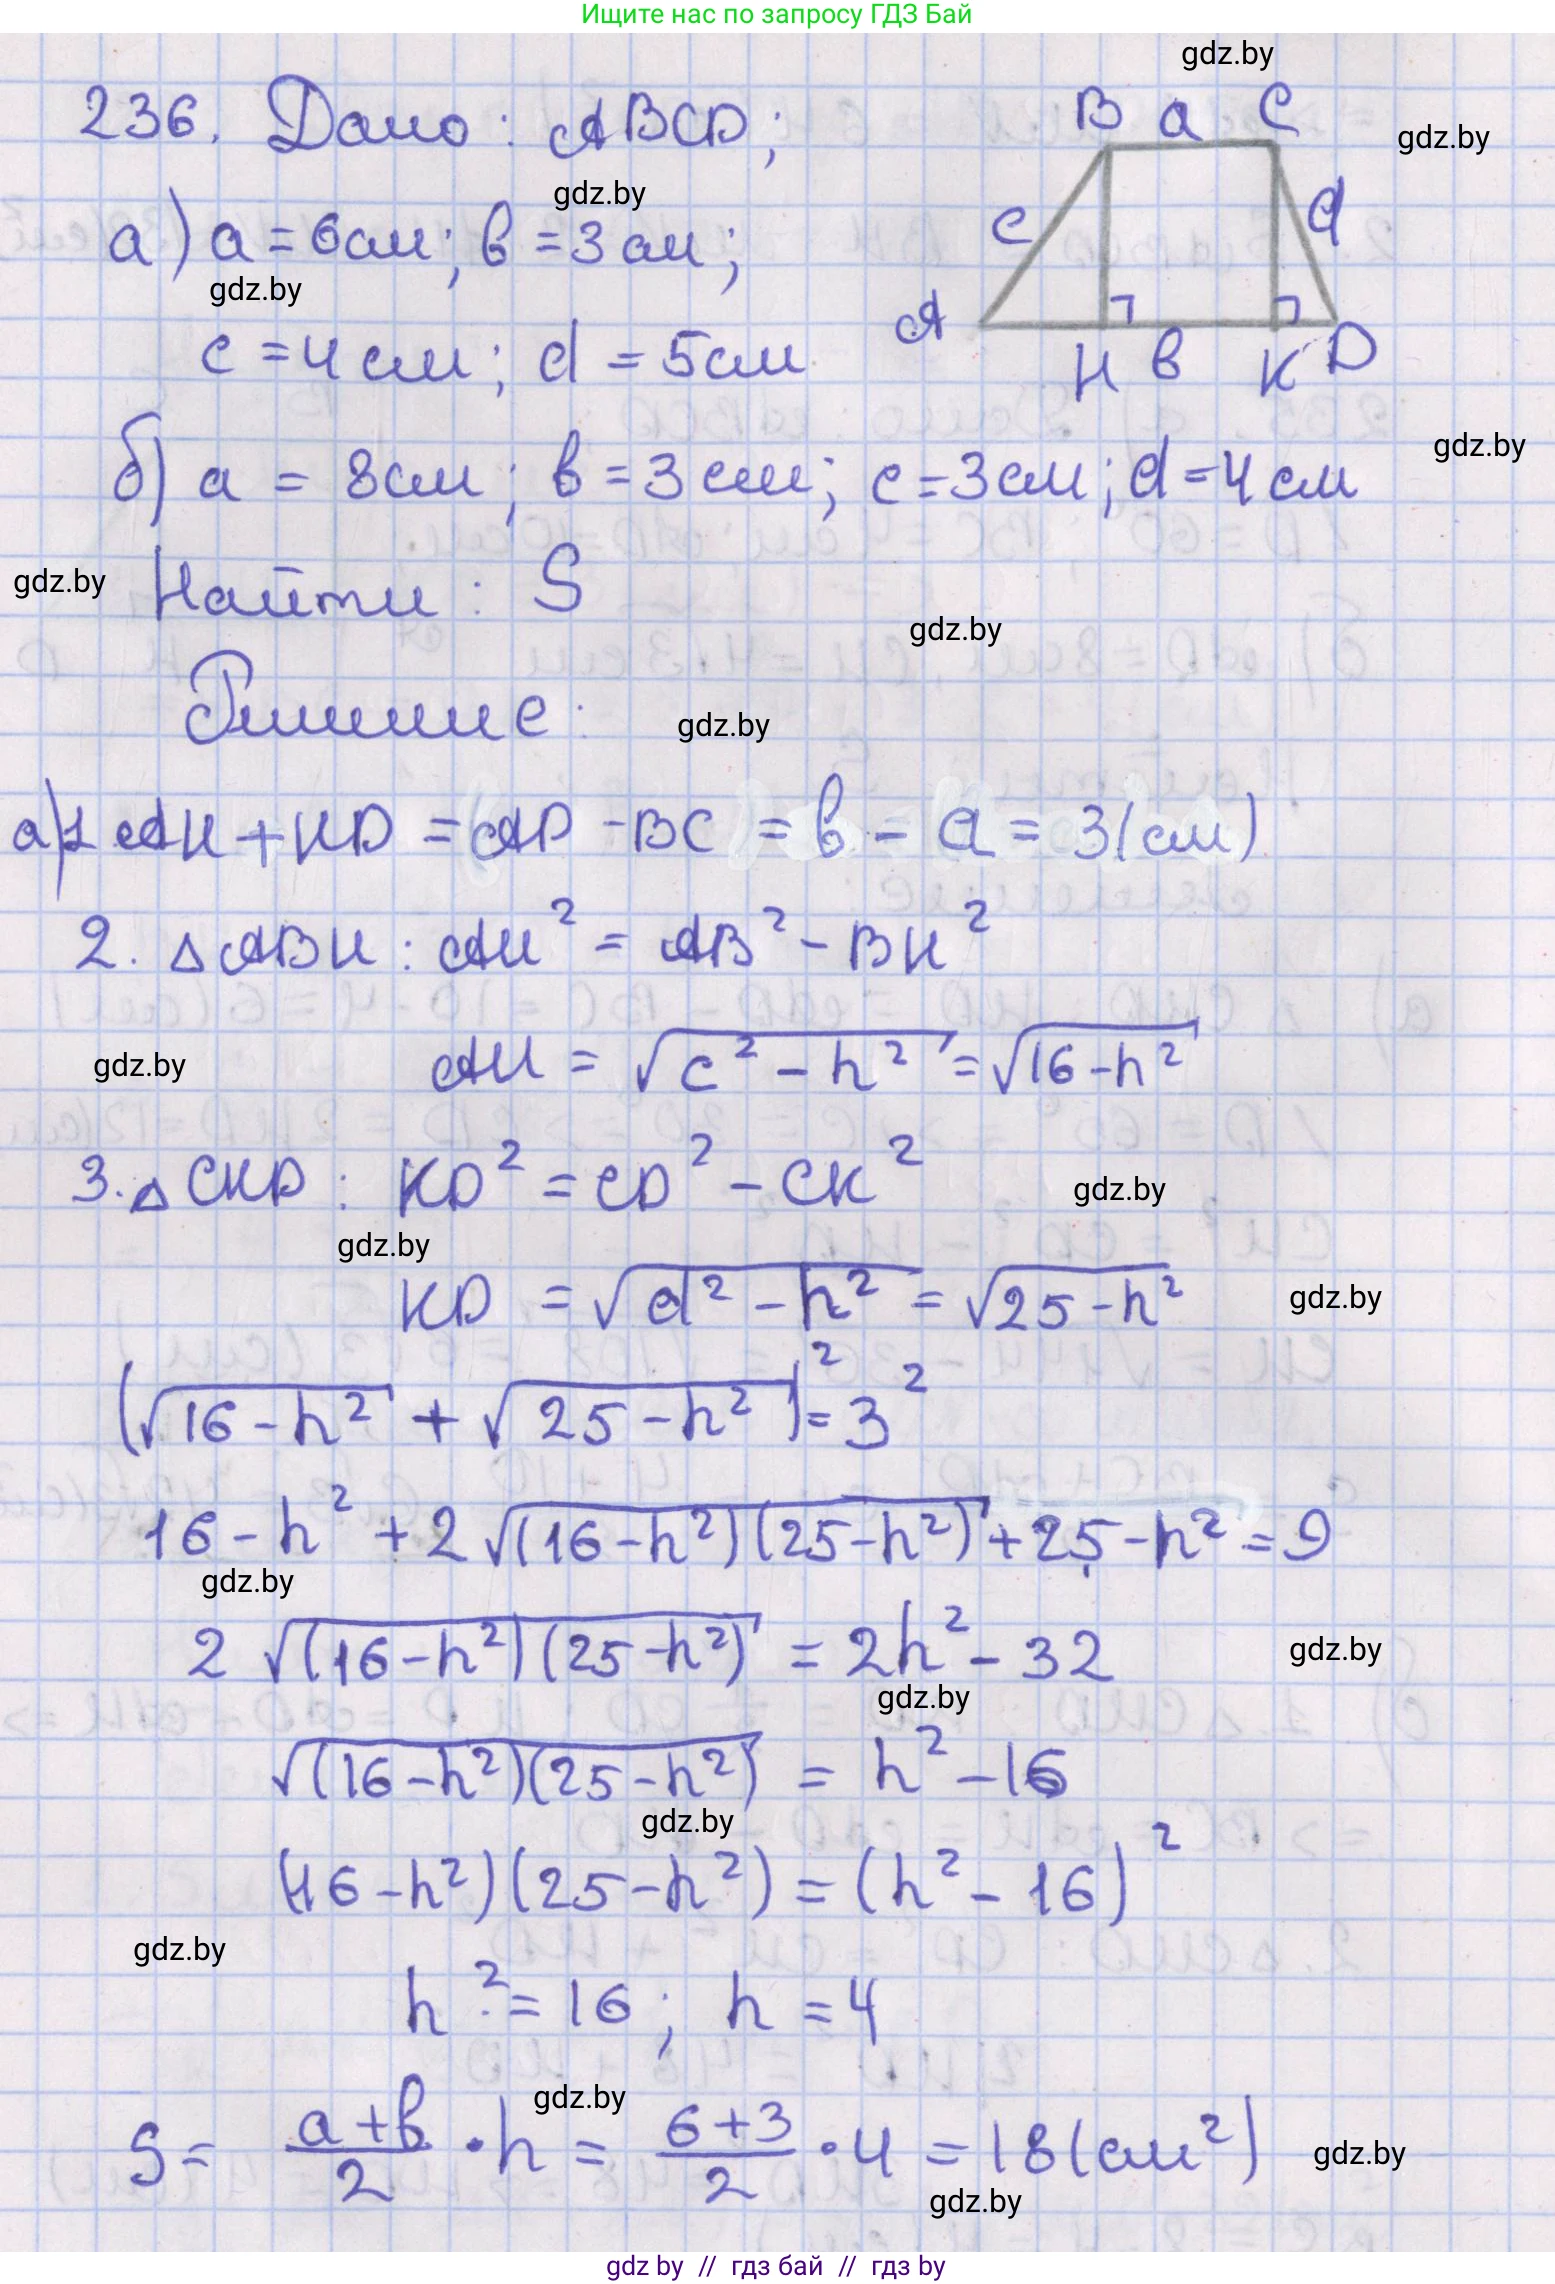 Ищите нас по запросу ГДЗ Бай
gdz.by
236. Дано: ABCD;
B a C
gdz.by
gdz.by
c d
а) a = 6см; в = 3см;
gdz.by
A H в K D
c = 4см; d = 5см
gdz.by
б) a = 8см; в = 3см; c = 3см; d = 4см
gdz.by
Найти: S
gdz.by
Решение:
gdz.by
а) 1. AH + KD = AD - BC = в - a = 3(см)
2. △ABH: AH² = AB² - BH²
AH = √(c² - h²) = √(16 - h²)
gdz.by
3. △CKD: KD² = CD² - CK²
gdz.by
gdz.by
KD = √(d² - h²) = √(25 - h²)
gdz.by
(√(16 - h²) + √(25 - h²))² = 3²
16 - h² + 2√((16 - h²)(25 - h²)) + 25 - h² = 9
gdz.by
2√((16 - h²)(25 - h²)) = 2h² - 32
gdz.by
gdz.by
√((16 - h²)(25 - h²)) = h² - 16
gdz.by
(16 - h²)(25 - h²) = (h² - 16)²
gdz.by
h² = 16; h = 4
gdz.by
S = (a + в)/2 · h = (6 + 3)/2 · 4 = 18(см²)
gdz.by
gdz.by
gdz by // гдз бай // гдз by